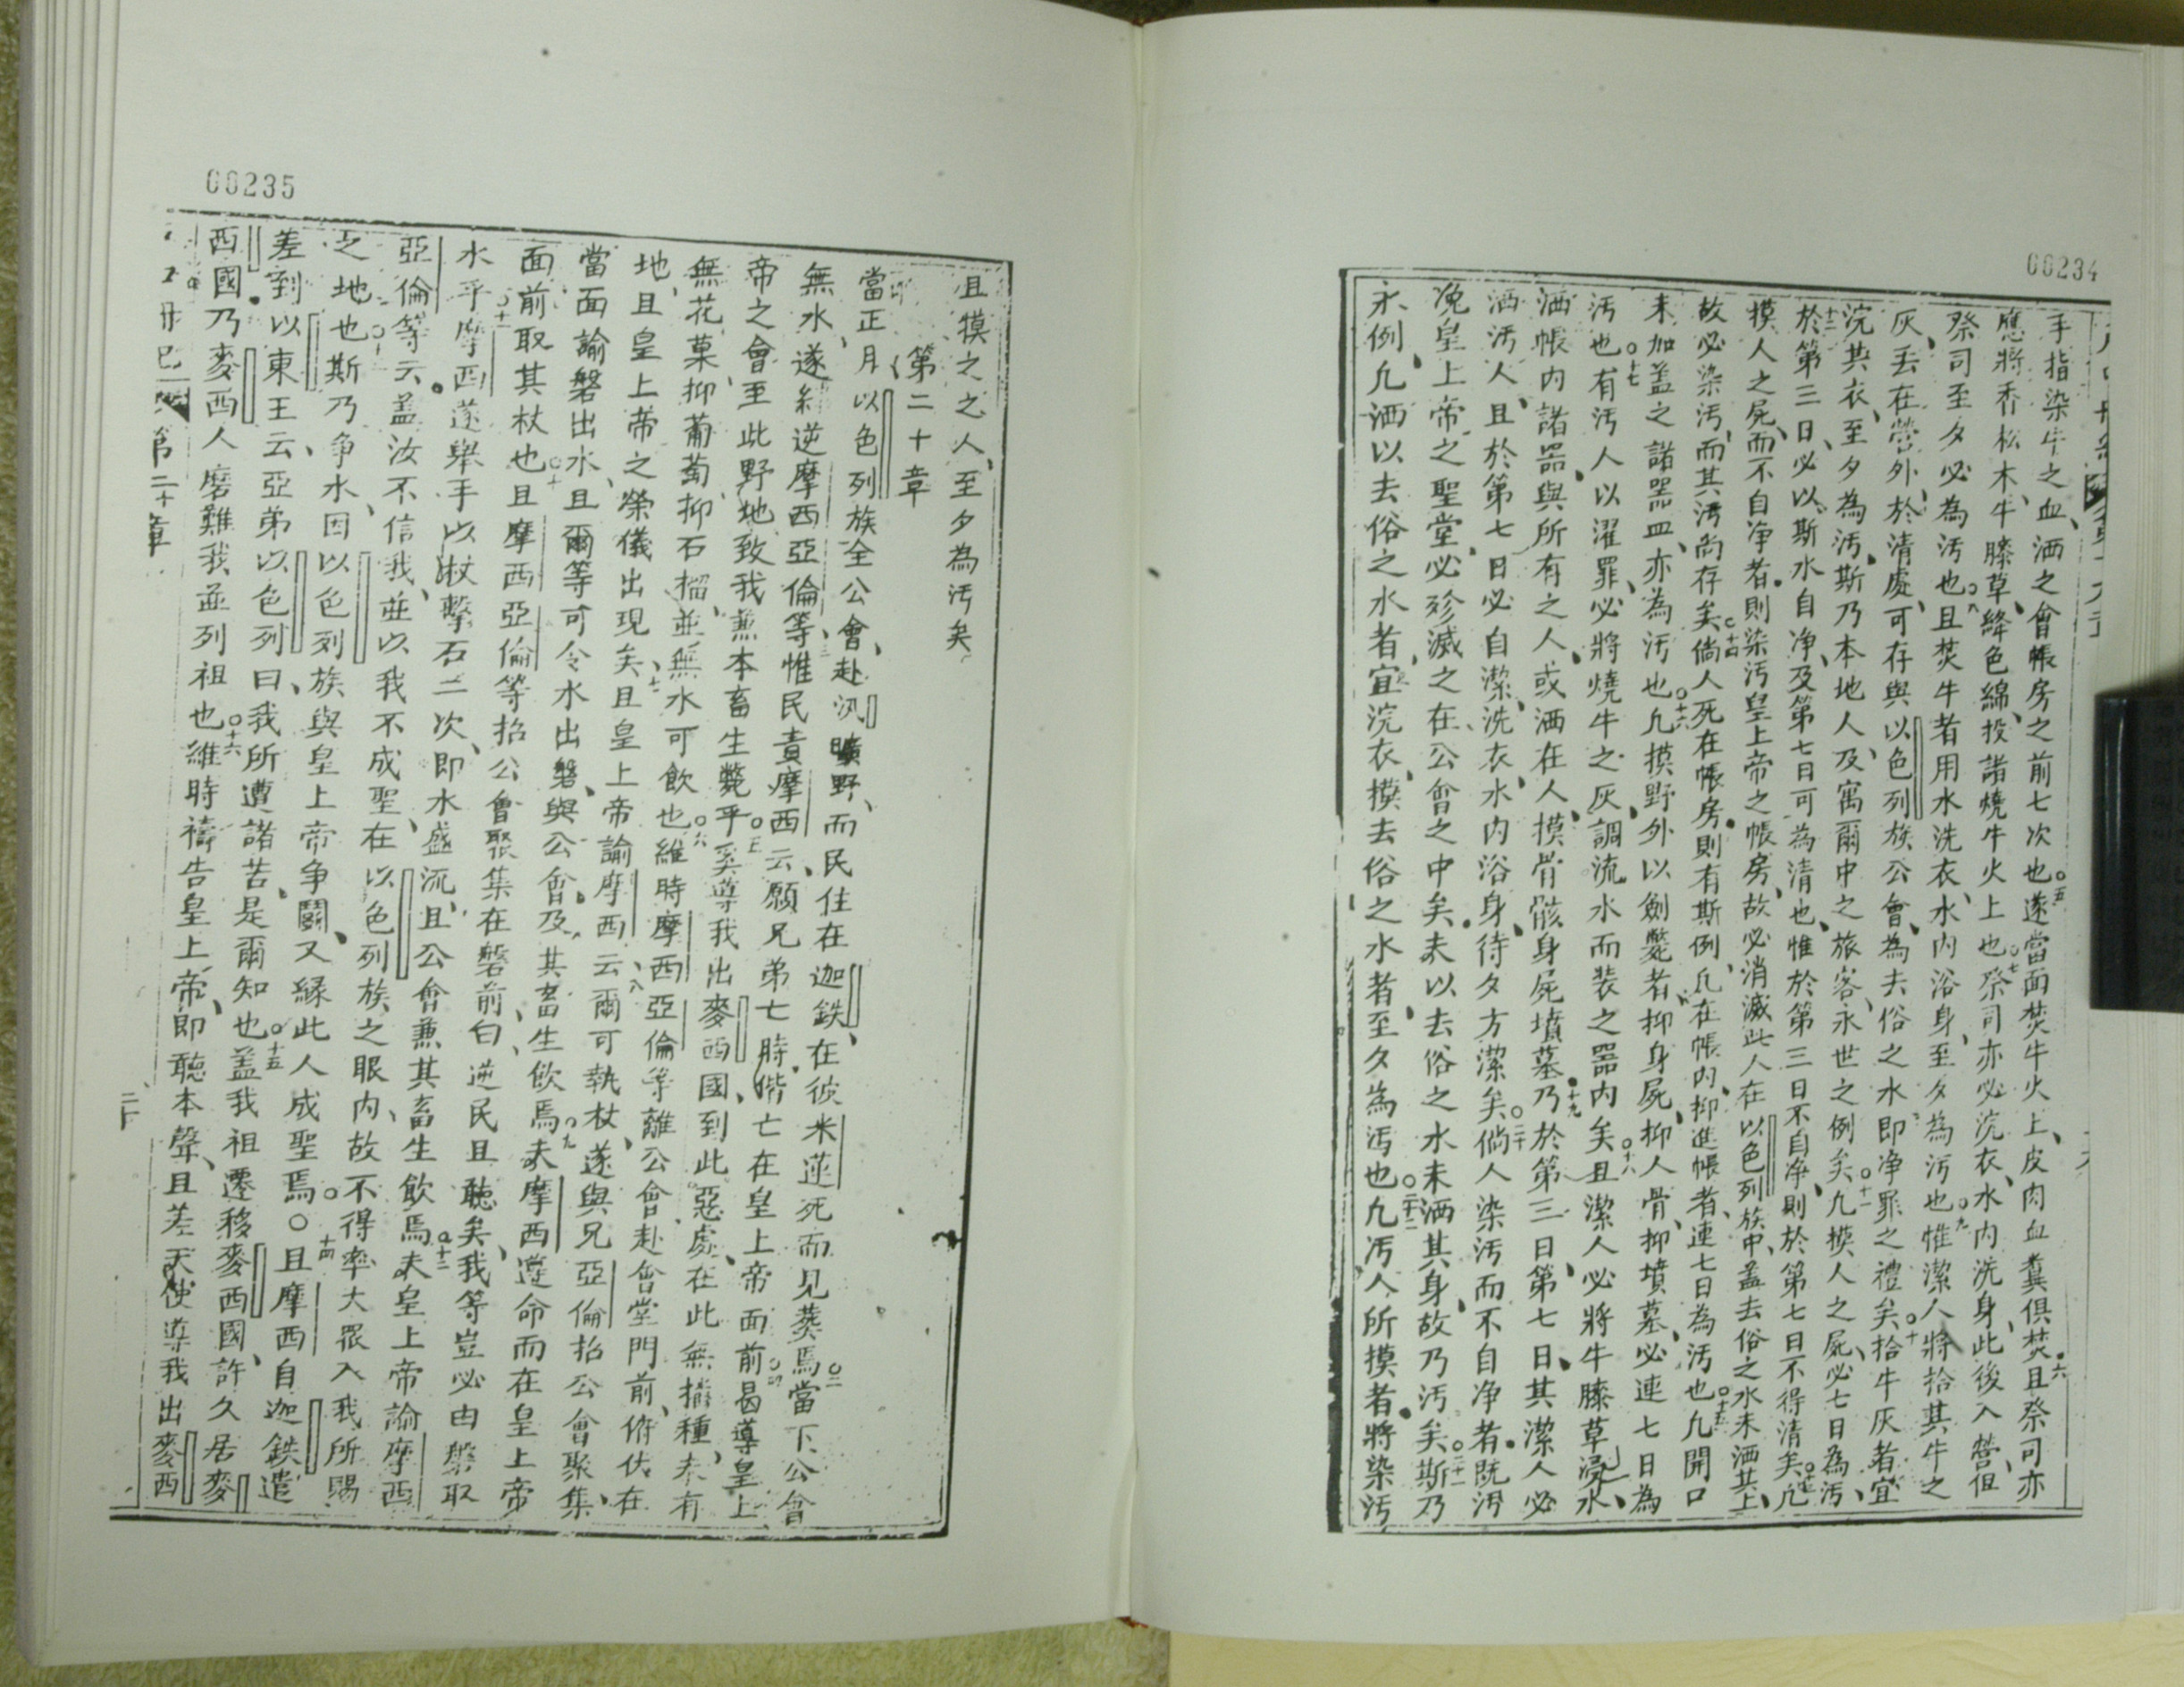 00234
手指染牛之血、洒之會帳房之前七次也○五遂當面焚牛火上、皮肉血糞俱焚○六且祭司亦
應將香松木、牛膝草、絳色綿、投諸燒牛火上也○七祭司亦必浣衣、水內洗身、此後入營、但
祭司至夕必為污也○八且焚牛者用水洗衣、水內浴身、至夕為污也○九惟潔人將拾其牛之
灰、丟在營外、於清處、可存與以色列族公會、為去俗之水、即净罪之禮矣○十拾牛灰者宜
浣其衣、至夕為污、斯乃本地人、及寓爾中之旅客、永世之例矣○十一凡摸人之屍、必七日為污、
十二於第三日、必以斯水自净、及第七日可為清也、惟於第三日不自净、則於第七日不得清矣○十三凡
摸人之屍、而不自净者、則染污皇上帝之帳房、故必消滅此人在以色列族中、盖去俗之水未洒其上、
故必染污、而其污尚存矣○十四倘人死在帳房、則有斯例、凡在帳內、抑進帳者、連七日為污也○十五凡開口
未加盖之諸噐皿、亦為污也○十六凡摸野外以劍斃者、抑身屍、抑人骨、抑墳墓、必連七日為
污也○十七有污人以濯罪、必將燒牛之灰、調流水而裝之噐內矣○十八且潔人必將牛膝草浸水、
洒帳內諸噐、與所有之人、或洒在人、摸骨骸身屍墳墓○十九乃於第三日、第七日、其潔人必
洒污人、且於第七日必自潔、洗衣、水內浴身、待夕方潔矣○二十倘人染污而不自净者、既污
浼皇上帝之聖堂、必殄滅之在公會之中矣、未以去俗之水未洒其身、故乃污矣○二十一斯乃
永例、凡洒以去俗之水者、宜浣衣、摸去俗之水者、至夕為污也○二十二凡污人所摸者、將染污、
00235
且摸之之人、至夕為污矣、
第二十章
當正月以色列族全公會、赴汛曠野、而民住在迦鉄、在彼米逆死而見葬焉○二當下公會
無水、遂結逆摩西亞倫等、三惟民責摩西云、願兄弟亡時、偕亡在皇上帝面前○四曷導皇上
帝之會至此野地、致我兼本畜生斃乎○五奚導我出麥西國、到此惡處、在此無播種、未有
無花菓、抑葡萄、抑石榴、並無水可飲也○六維時摩西亞倫等離公會赴會堂門前、俯伏在
地、且皇上帝之榮儀出現矣、七且皇上帝諭摩西云、八爾可執杖、遂與兄亞倫招公會聚集、
當面諭磐出水、且爾等可令水出磐、與公會、及其畜生飲焉○九夫摩西遵命而在皇上帝
面前取其杖也○十且摩西亞倫等招公會聚集在磐前、曰、逆民且聽矣、我等豈必由磐取
水乎○十一摩西遂舉手以杖擊石二次、即水盛流、且公會兼其畜生飲焉○十二夫皇上帝諭摩西
亞倫等云、盖汝不信我、並以我不成聖、在以色列族之眼內、故不得率大眾入我所賜
之地也○十三斯乃争水、因以色列族與皇上帝争鬭、又緣此人成聖焉○○十四且摩西自迦鉄遣
差到以東王云、亞弟以色列曰、我所遭諸苦、是爾知也○十五盖我祖遷移麥西國、許久居麥
西國、乃麥西人磨難我、並列祖也○十六維時禱告皇上帝、即聽本聲、且差天使導我出麥西
第二十章
二十